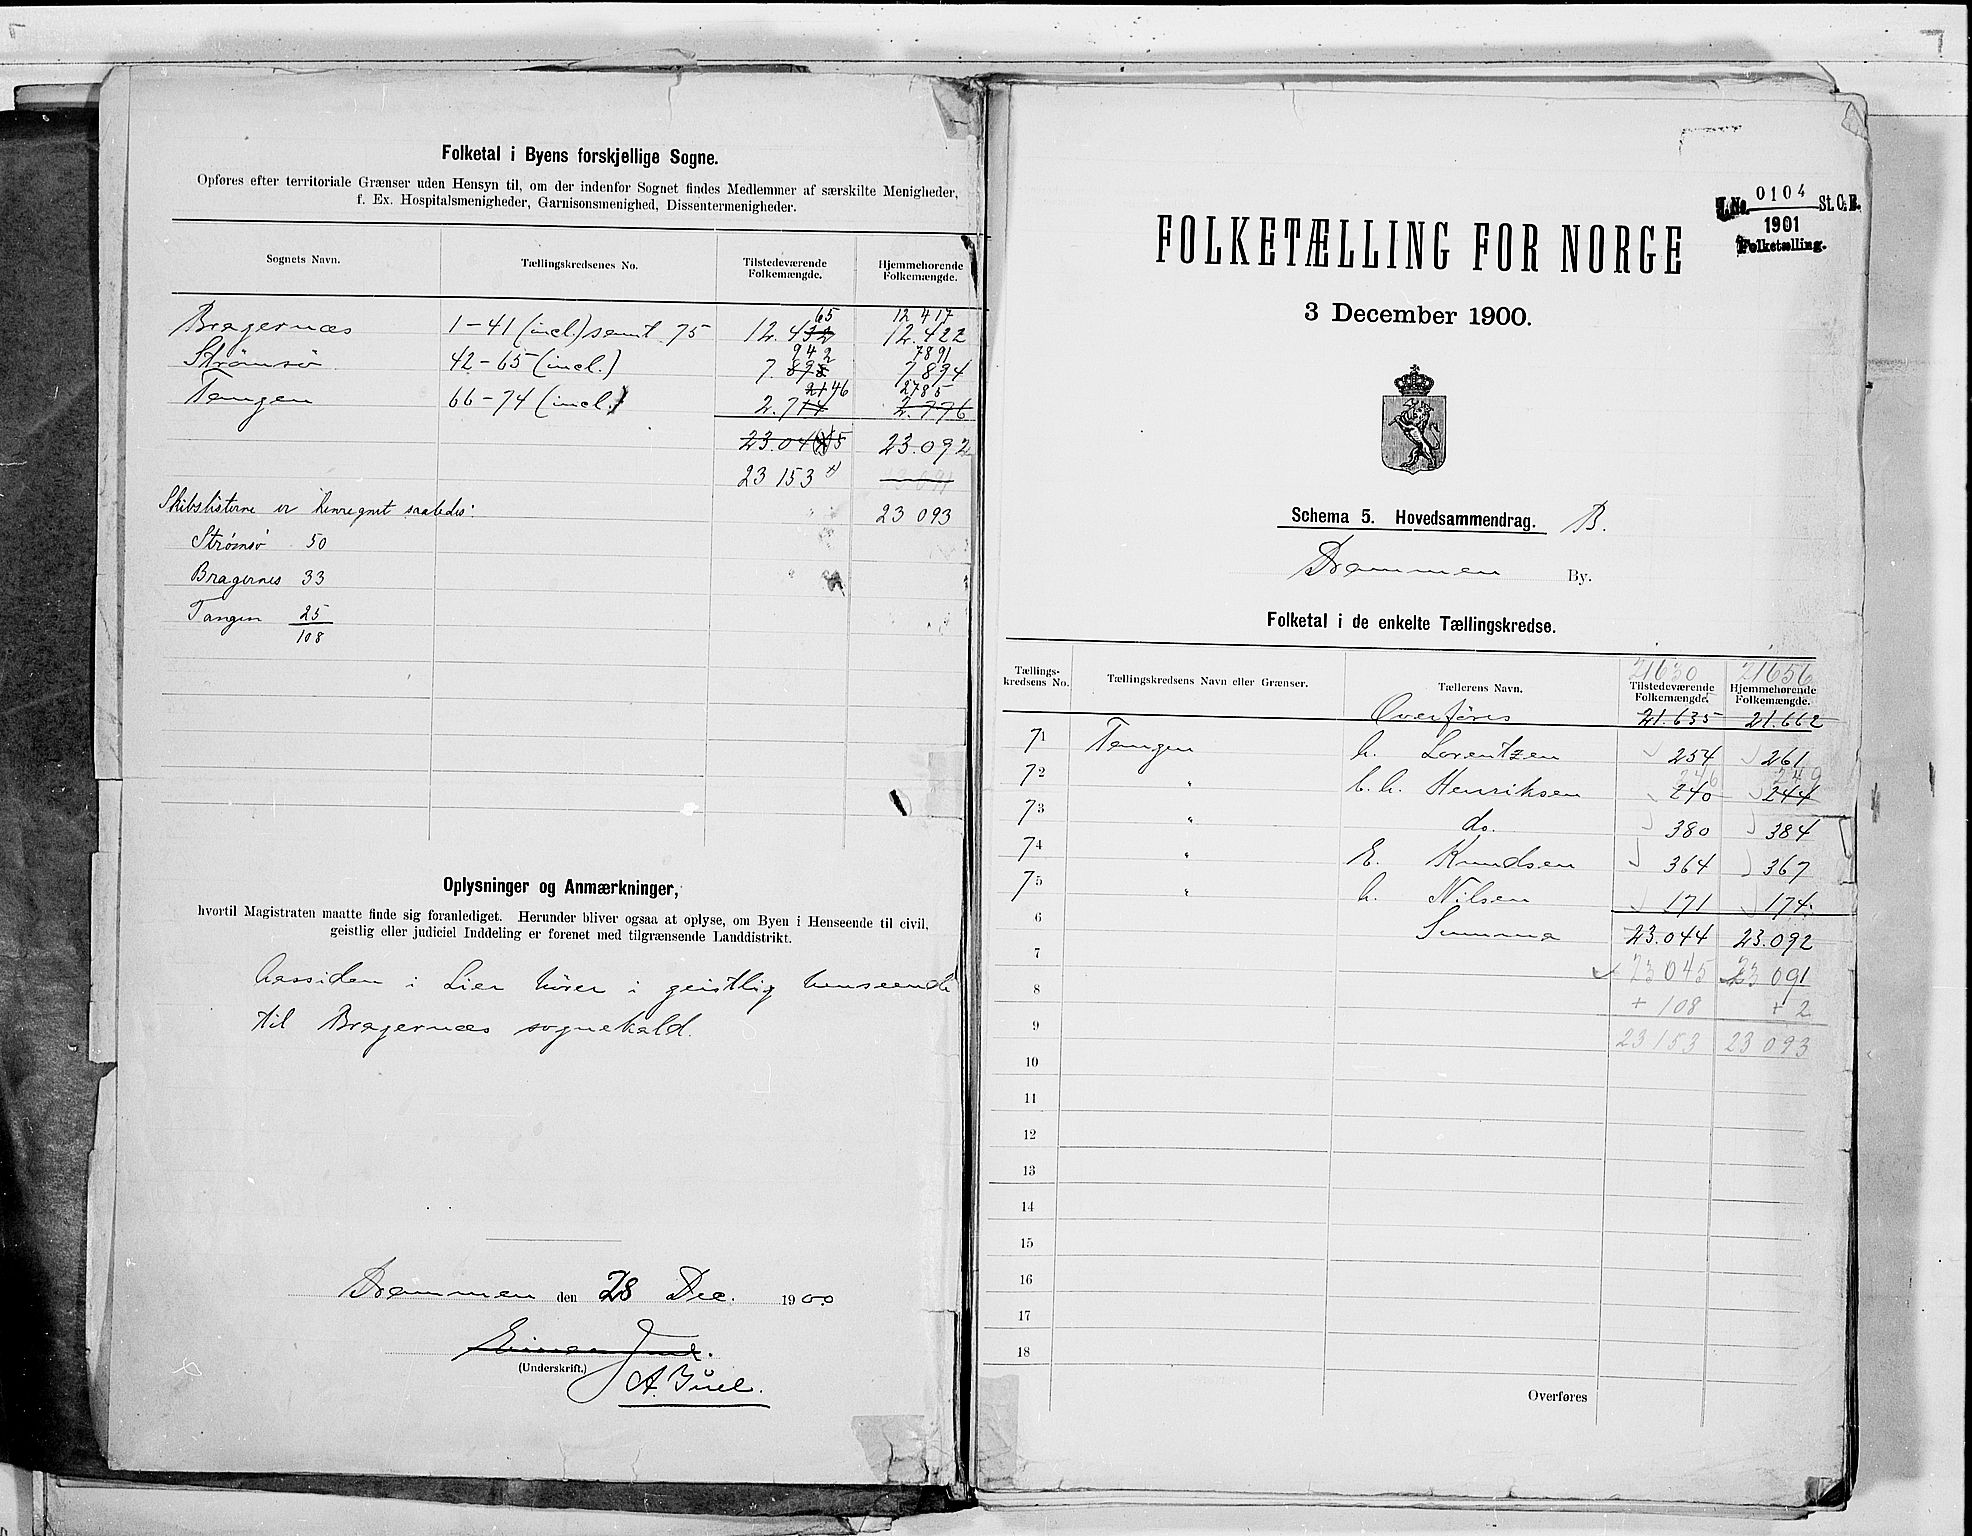 Folketal i Byens forskjellige Sogne.
Opføres efter territoriale Grænser uden Hensyn til, om der indenfor Sognet findes Medlemmer af særskilte Menigheder,
f. Ex. Hospitalsmenigheder, Garnisonsmenighed, Dissentermenigheder.
Sognets Navn. Tællingskredsenes No. Tilstedeværende Folkemængde. Hjemmehørende Folkemængde.
65 12 417
Bragernæs 1-41 (incl.) samt 75 12.432 12.422
942 7891
Strømsø 42-65 (incl.) 7.898 7894
2146 2785
Tangen 66-74 (incl.) 2.714 2.776
23.04 55 23.092
23 153
Skibslisterne er henregnet saaledes: 23 093
Strømsø 50
Bragernes 33
Tangen 25
108
Oplysninger og Anmærkninger,
hvortil Magistraten maatte finde sig foranlediget. Herunder bliver ogsaa at oplyse, om Byen i Henseende til civil,
geistlig eller judiciel Inddeling er forenet med tilgrænsende Landdistrikt.
i Lier hører i geistlig henseende
til Bragernæs sognekald.
Drammen den 28 Dec. 1900
(Underskrift.)
A. Juel.
0104
J. No. St. C. B.
1901
Folketælling.
FOLKETÆLLING FOR NORGE
3 December 1900.
Schema 5. Hovedsammendrag. B.
Drammen By.
Folketal i de enkelte Tællingskredse.
21630 21656
Tællings-kredsens No. Tællingskredsens Navn eller Grænser. Tællerens Navn. Tilstedeværende Folkemængde. Hjemmehørende Folkemængde.
Overføres 21.635 21.662
71 Tangen h. Lorentzen 254 261
246 249
72 " C. h. Henriksen 240 244
73 " do. 380 384
74 " E. Knudsen 364 367
75 " h. Nilsen 171 174
6 Summa 23.044 23.092
7 23 045 23 091
8 + 108 + 2
9 23 153 23 093
10
11
12
13
14
15
16
17
18
Overføres